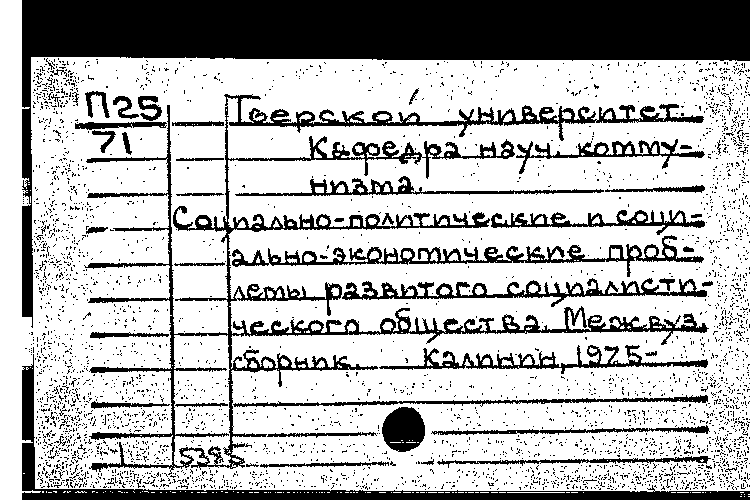 П25 Тверской университет.
71 Кафедра науч. комму-
низма.
Социально-политические и соци-
ально-экономические проб-
лемы развитого социалисти-
ческого общества. Межвуз.
сборник. Калинин, 1975-
1 5385